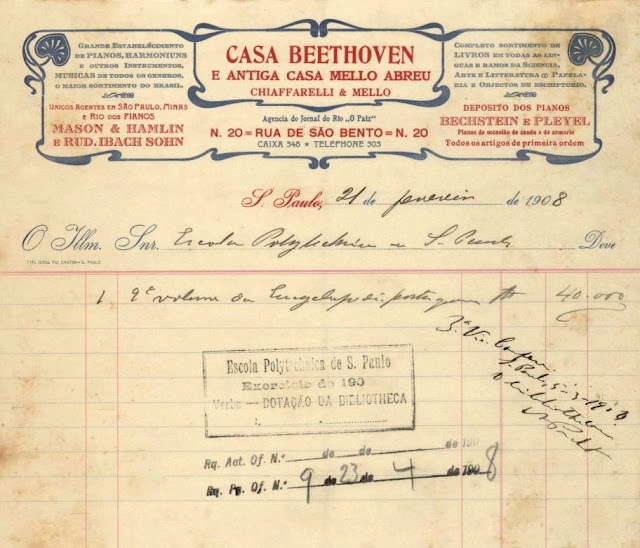 GRANDE ESTABELECIMENTO
DE PIANOS, HARMONIUNS
E OUTROS INSTRUMENTOS,
MUSICAS DE TODOS OS GENEROS,
O MAIOR SORTIMENTO DO BRASIL.
UNICOS AGENTES EM SÃO PAULO, MINAS
E RIO DOS PIANOS
MASON & HAMLIN
E RUD. IBACH SOHN
CASA BEETHOVEN
E ANTIGA CASA MELLO ABREU
CHIAFFARELLI & MELLO
Agencia do Jornal do Rio „O Paiz"
N. 20 = RUA DE SÃO BENTO = N. 20
CAIXA 548 * TELEPHONE 303
COMPLETO SORTIMENTO DE
LIVROS EM TODAS AS LIN-
GUAS E RAMOS DA SCIENCIA,
ARTE E LITTERATURA & PAPELA-
RIA E OBJECTOS DE ESCRIPTORIO.
DEPOSITO DOS PIANOS
BECHSTEIN E PLEYEL
Pianos de occasião de cauda e de armario
Todos os artigos de primeira ordem
S. Paulo, 21 de fevereiro de 1908
O Illm. Snr. Escola Polytechnica de S. Paulo Deve
1 2º volume da Encyclopedia portugueza 40.000
3ª Via
Escola Polytechnica de S. Paulo
Exercicio de 190
Verba — DOTAÇÃO DA BIBLIOTHECA
Rq. Act. Of. N.º de de de 190
Rq. Pg. Of. N.º 9 de 23 de 4 de 1908